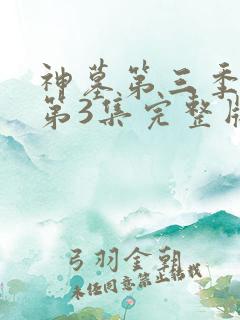 神墓第三季
第3集完整版
弓羽金朝
未经同意禁止转载